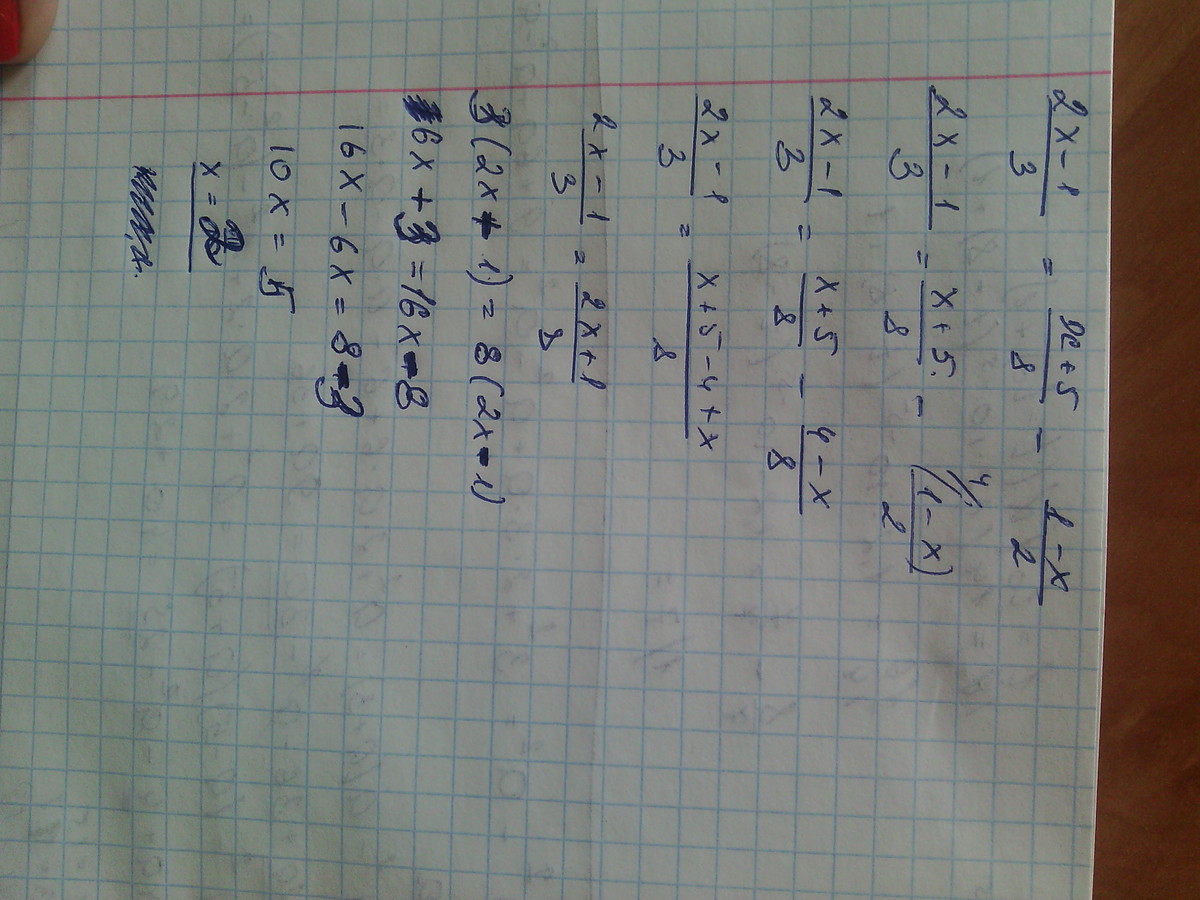 (2x-1)/3 = (x+5)/8 - (1-x)/2
(2x-1)/3 = (x+5)/8 - 4/(1-x)/2
(2x-1)/3 = (x+5)/8 - (4-x)/8
(2x-1)/3 = (x+5-4+x)/8
(2x-1)/3 = (2x+1)/8
3(2x+1) = 8(2x-1)
6x+3 = 16x-8
16x-6x = 8-3
10x = 5
x =